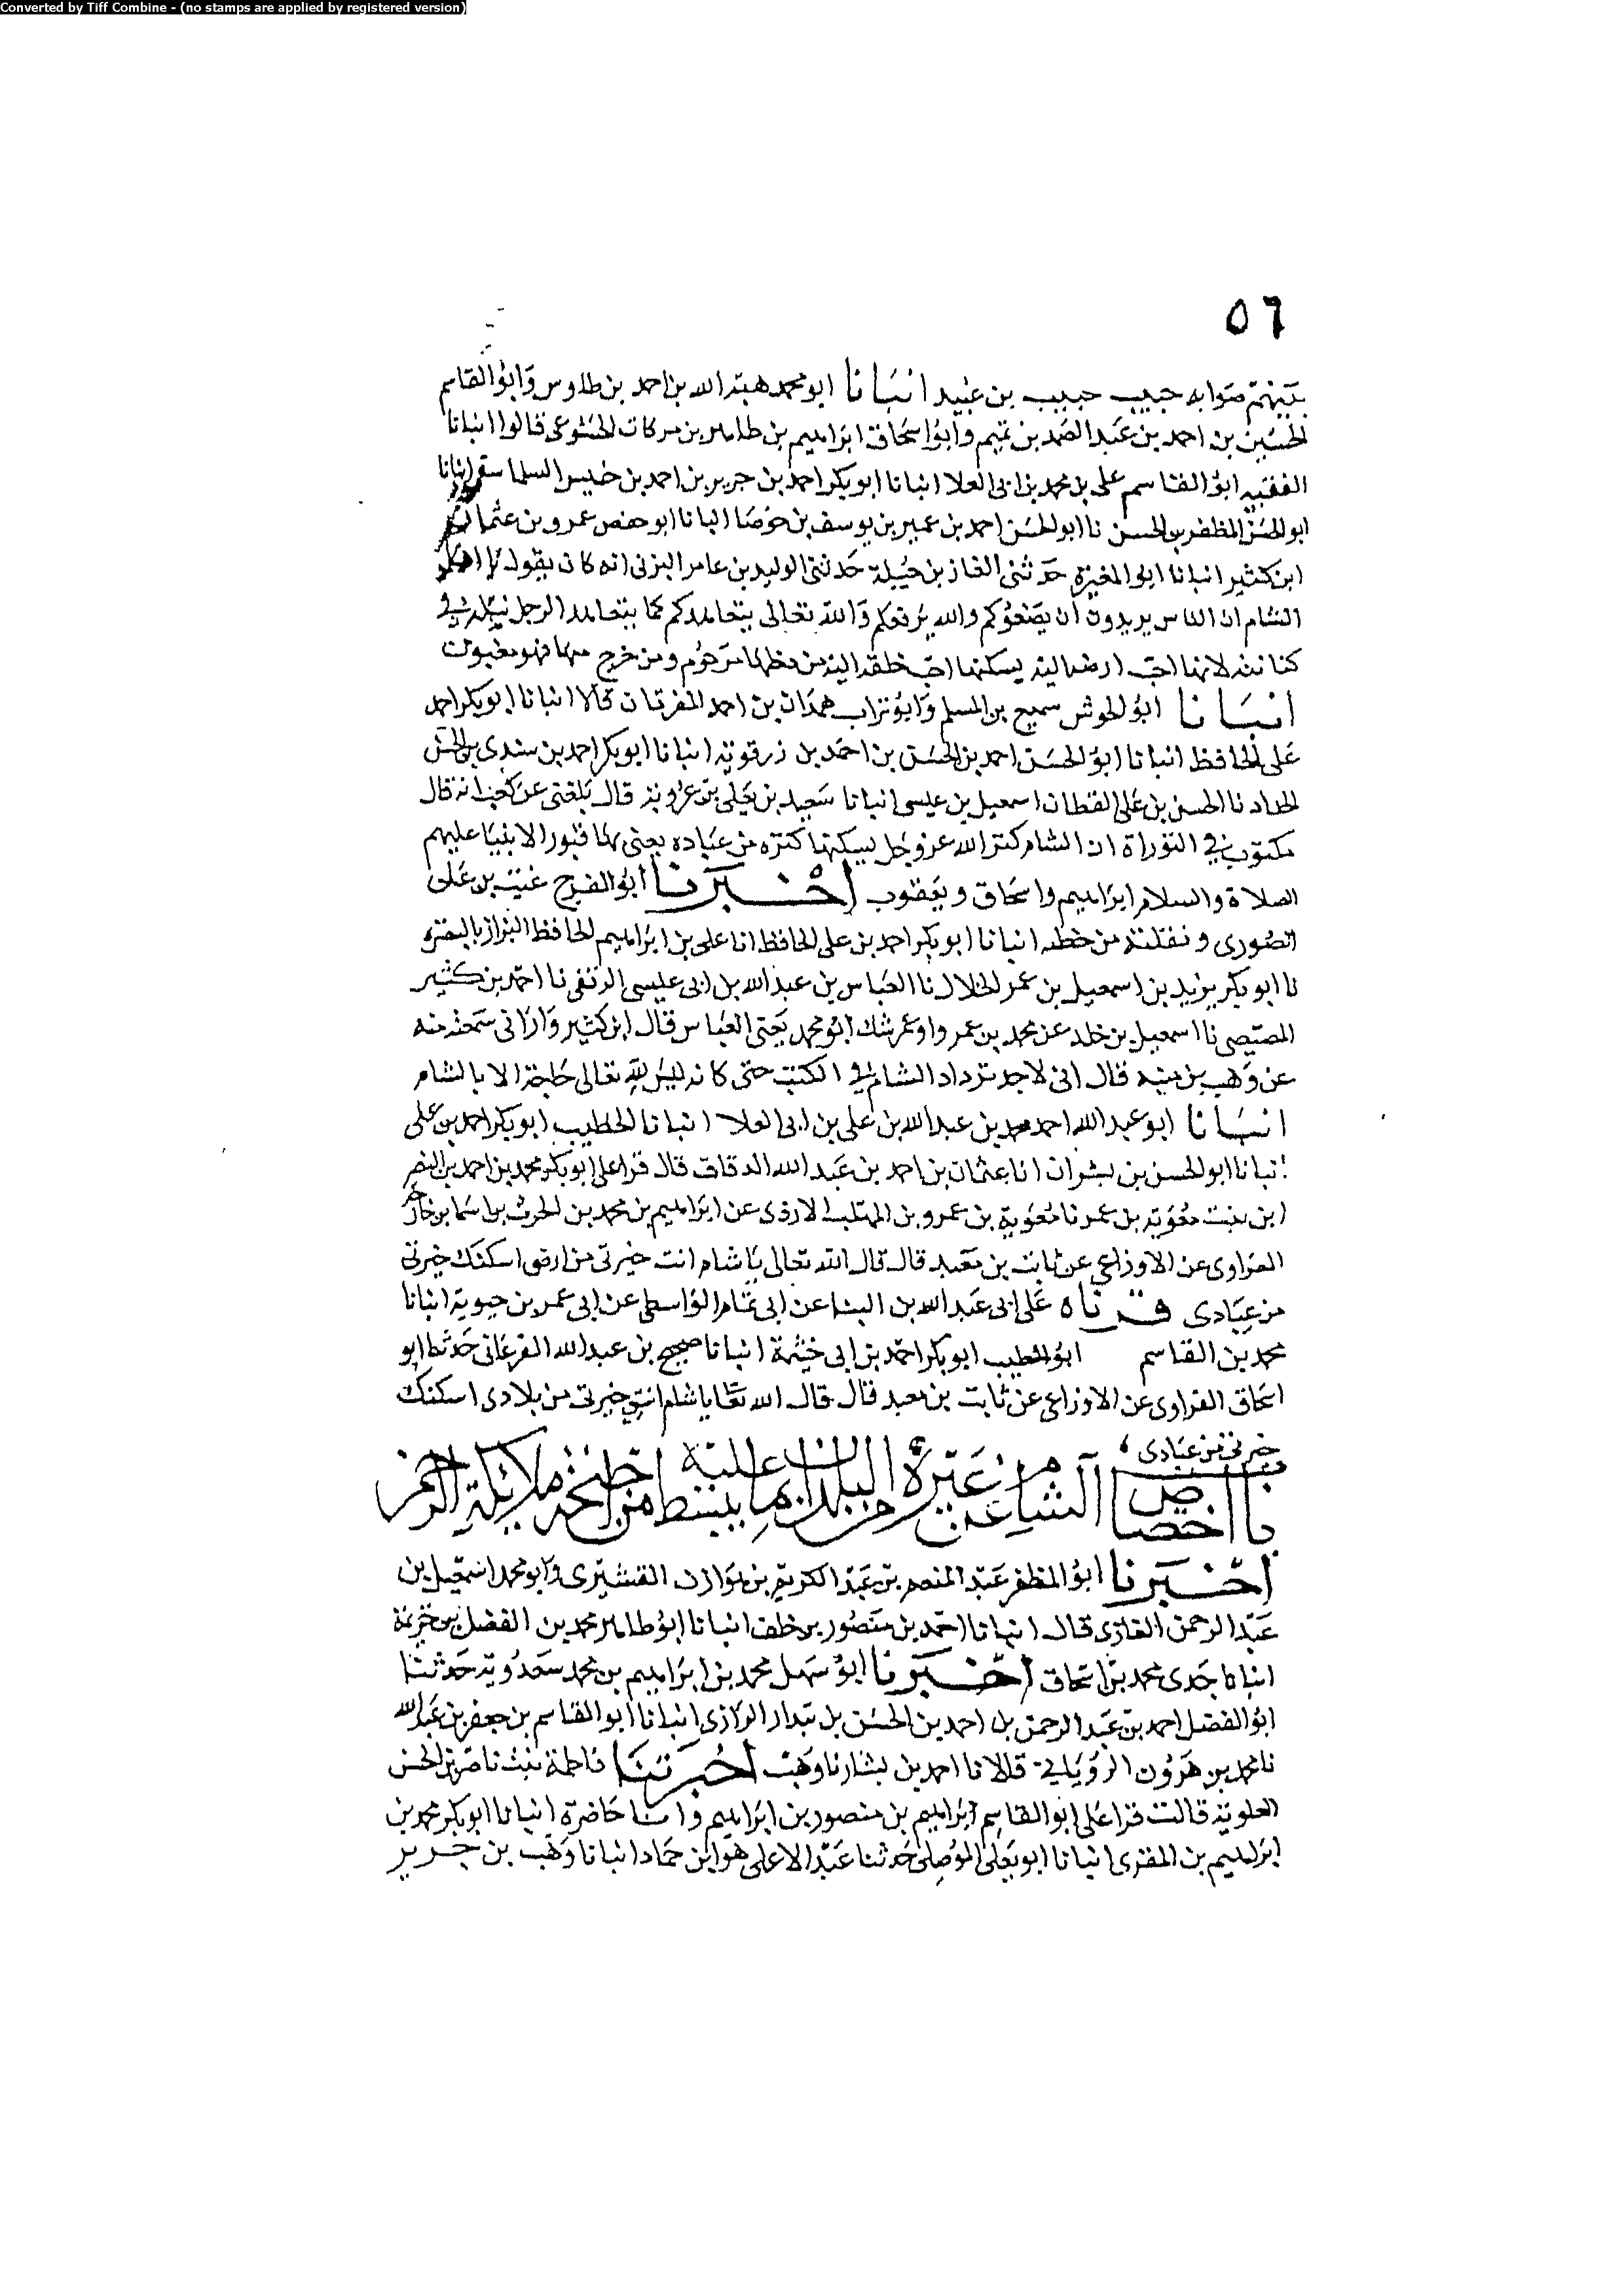 Converted by Tiff Combine - (no stamps are applied by registered version)
٥٦
صوابه حبيب بن عبيد انبانا ابو محمد هبة الله بن احمد بن طاوس وابو القاسم
الحسين بن احمد بن عبد الصمد بن تميم وابو اسحاق ابراهيم بن طاهر بن بركات الخشوعي قالوا انبانا
الفقيه ابو القاسم علي بن محمد بن ابي العلا انبانا ابو بكر احمد بن جرير بن احمد بن خميس السلماسي انبانا
ابو الحسن المظفر بن الحسن نا ابو الحسن احمد بن عمير بن يوسف بن حوصا انبانا ابو حفص عمرو بن عثمان
ابن كثير انبانا ابو المغيرة حدثني الغاز بن جبلة حدثني الوليد بن عامر اليزني انه كان يقول يا اهل
الشام ان الناس يريدون ان يضعوكم والله يرفعكم والله تعالى يتعاهدكم كما يتعاهد الرجل نبله في
كنانته لانها احب ارضه اليه يسكنها احب خلقه اليه من دخلها مرحوم ومن خرج منها فهو مغبون
انبانا ابو الوحش سبيع بن المسلم وابو تراب حيدرة بن احمد المقرئان قالا انبانا ابو بكر احمد
علي الحافظ انبانا ابو الحسن احمد بن الحسن بن احمد بن زرقويه انبانا ابو بكر احمد بن سندي بن الحسن
الحداد نا الحسن بن علي القطان اسمعيل بن عيسى انبانا سعيد بن علي بن عروبة قال بلغني عن كعب انه قال
مكتوب في التوراة ان الشام كنز الله عز وجل يسكنها كنزه من عباده يعني بها قبور الانبيا عليهم
الصلاة والسلام ابراهيم واسحاق ويعقوب اخبرنا ابو الفرج غيث بن علي
الصوري ونقلته من خطه انبانا ابو بكر احمد بن علي الحافظ انا علي بن ابراهيم الحافظ البزاز بالبصرة
نا ابو بكر يزيد بن اسمعيل بن عمر الخلال نا العباس بن عبد الله بن ابي عيسى الترقفي نا احمد بن كثير
المصيصي نا اسمعيل بن خلد عن محمد بن عمرو او عمر شك ابو محمد يعني العباس قال ابن كثير واراني سمعته منه
عن وهب بن منبه قال اني لاجد ترداد الشام في الكتب حتى كانه ليس لله تعالى حاجة الا بالشام
انبانا ابو عبد الله احمد محمد بن عبد الله بن علي بن ابي العلا انبانا الخطيب ابو بكر احمد بن علي
انبانا ابو الحسن بن بشران انا عثمان بن احمد بن عبد الله الدقاق قال قرا علي ابو بكر محمد بن احمد بن النضر
ابن بنت معوية بن عمر نا معوية بن عمرو بن المهلب الازدي عن ابراهيم بن محمد بن الحرث بن اسما بن خارجة
الفزاوي عن الاوزاعي عن ثابت بن معبد قال قال الله تعالى يا شام انت خيرتي من ارضي اسكنك خيرتي
من عبادي قرناه على ابي عبد الله بن البنا عن ابي تمام الواسطي عن ابي عمر بن حيوية انبانا
محمد بن القاسم ابو الطيب ابو بكر احمد بن ابي خيثمة انبانا صبيح بن عبد الله الفرغاني حدثنا ابو
اسحاق الفزاوي عن الاوزاعي عن ثابت بن معبد قال قال الله تعا يا شام انت خيرتي من بلادي اسكنك
خيرتي من عبادي
باب اختصاص الشام عن غيره من البلدان بما يبسط عليه من اجنحة ملائكة الرحمن
اخبرنا ابو المظفر عبد المنعم بن عبد الكريم بن هوازن القشيري وابو محمد اسمعيل بن
عبد الرحمن القارى قال انبانا احمد بن منصور بن خلف انبانا ابو طاهر محمد بن الفضل بن خزيمة
انبانا جدي محمد بن اسحاق اخبرنا ابو سهل محمد بن ابراهيم بن محمد سعدويه حدثنا
ابو الفضل احمد بن عبد الرحمن بن احمد بن الحسن بن بندار الرازي انبانا ابو القاسم بن جعفر بن عبد الله
نا محمد بن هرون الروياني قالا نا احمد بن بشار نا وهب اخبرتنا فاطمة بنت ناصر بن الحسن
العلوية قالت قرا على ابو القاسم ابراهيم بن منصور بن ابراهيم وانا حاضرة انبانا ابو بكر محمد بن
ابراهيم بن المقرى انبانا ابو يعلى الموصلي حدثنا عبد الاعلى هو ابن حماد انبانا وهب بن جرير